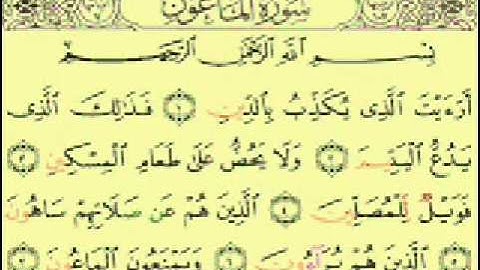 سورة الماعون
بسم الله الرحمن الرحيم
أرءيت الذى يكذب بالدين ١ فذلك الذى
يدع اليتيم ٢ ولا يحض على طعام المسكين ٣
فويل للمصلين ٤ الذين هم عن صلاتهم ساهون
٥ الذين هم يراءون ٦ ويمنعون الماعون ٧